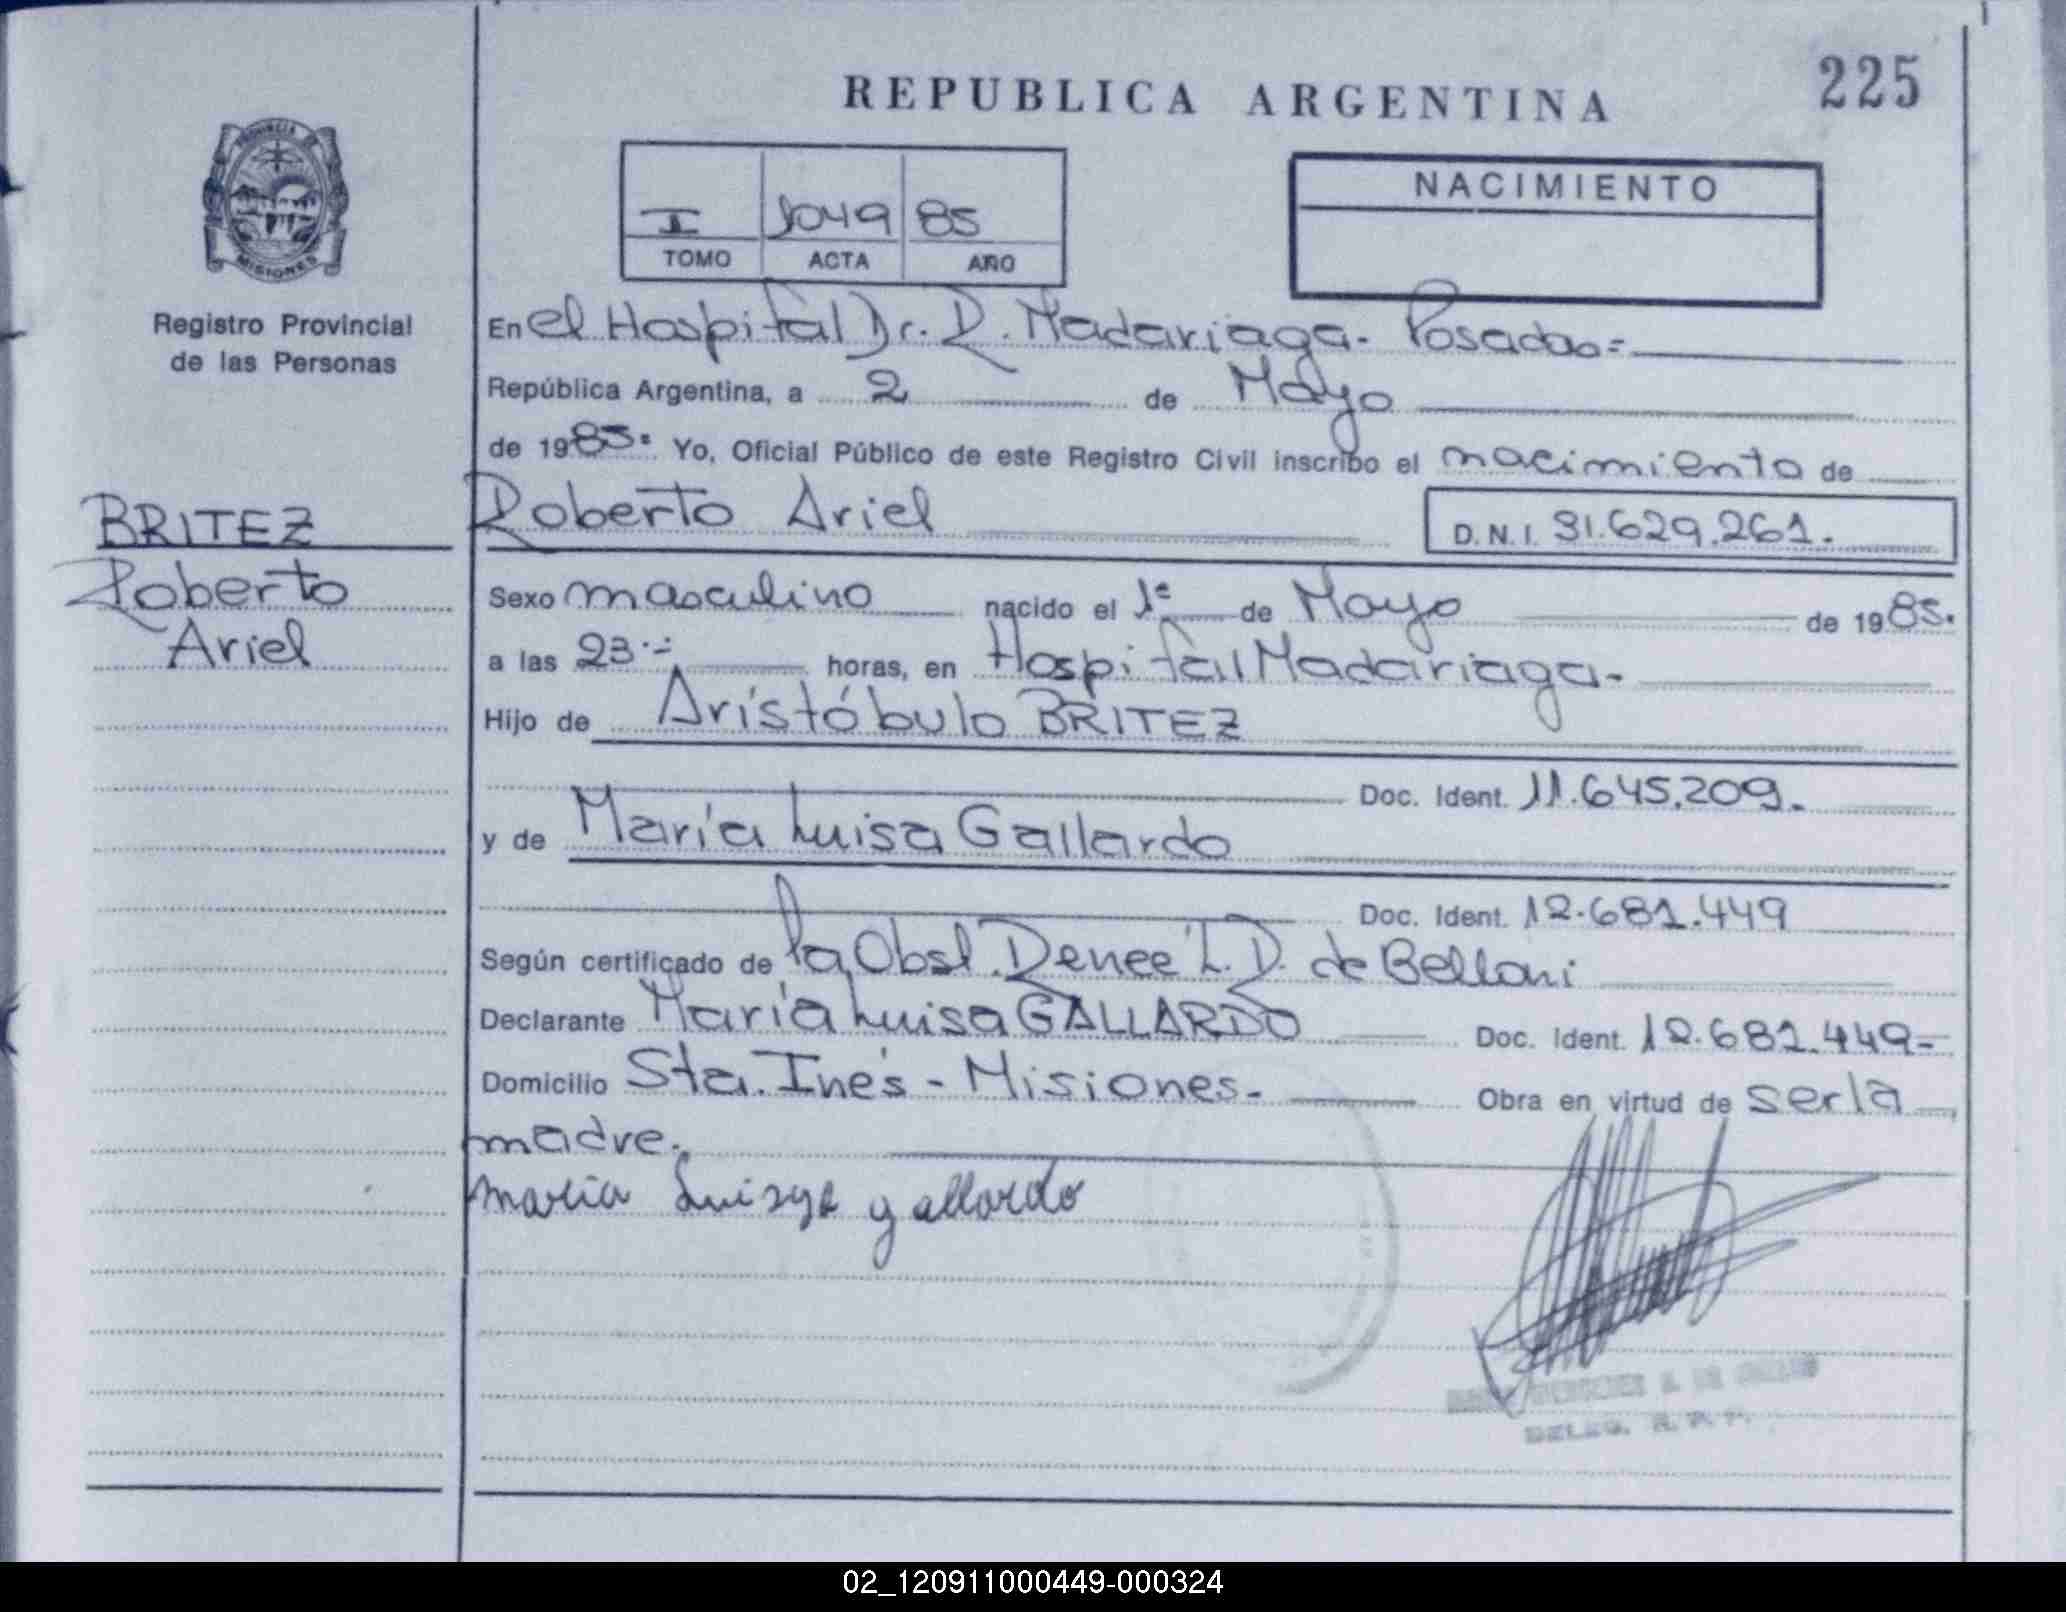 225
REPUBLICA ARGENTINA
PROVINCIA DE
MISIONES
Registro Provincial
de las Personas
I 1049 85
TOMO ACTA AÑO
NACIMIENTO
En el Hospital Dr. R. Madariaga. Posadas=
República Argentina, a 2 de Mayo
de 1985. Yo, Oficial Público de este Registro Civil inscribo el nacimiento de
BRITEZ
Roberto
Ariel
Roberto Ariel D.N.I. 31.629.261.
Sexo masculino nacido el 1º de Mayo de 1985.
a las 23.= horas, en Hospital Madariaga.
Hijo de Aristóbulo BRITEZ
Doc. Ident. 11.645.209.
y de María Luisa Gallardo
Doc. Ident. 12.681.449
Según certificado de la Obst. Renee L. D. de Belloni
Declarante María Luisa GALLARDO Doc. Ident. 12.681.449-
Domicilio Sta. Inés - Misiones. Obra en virtud de ser la
madre.
maria gallardo
DELEG. R. P. P.
02_120911000449-000324